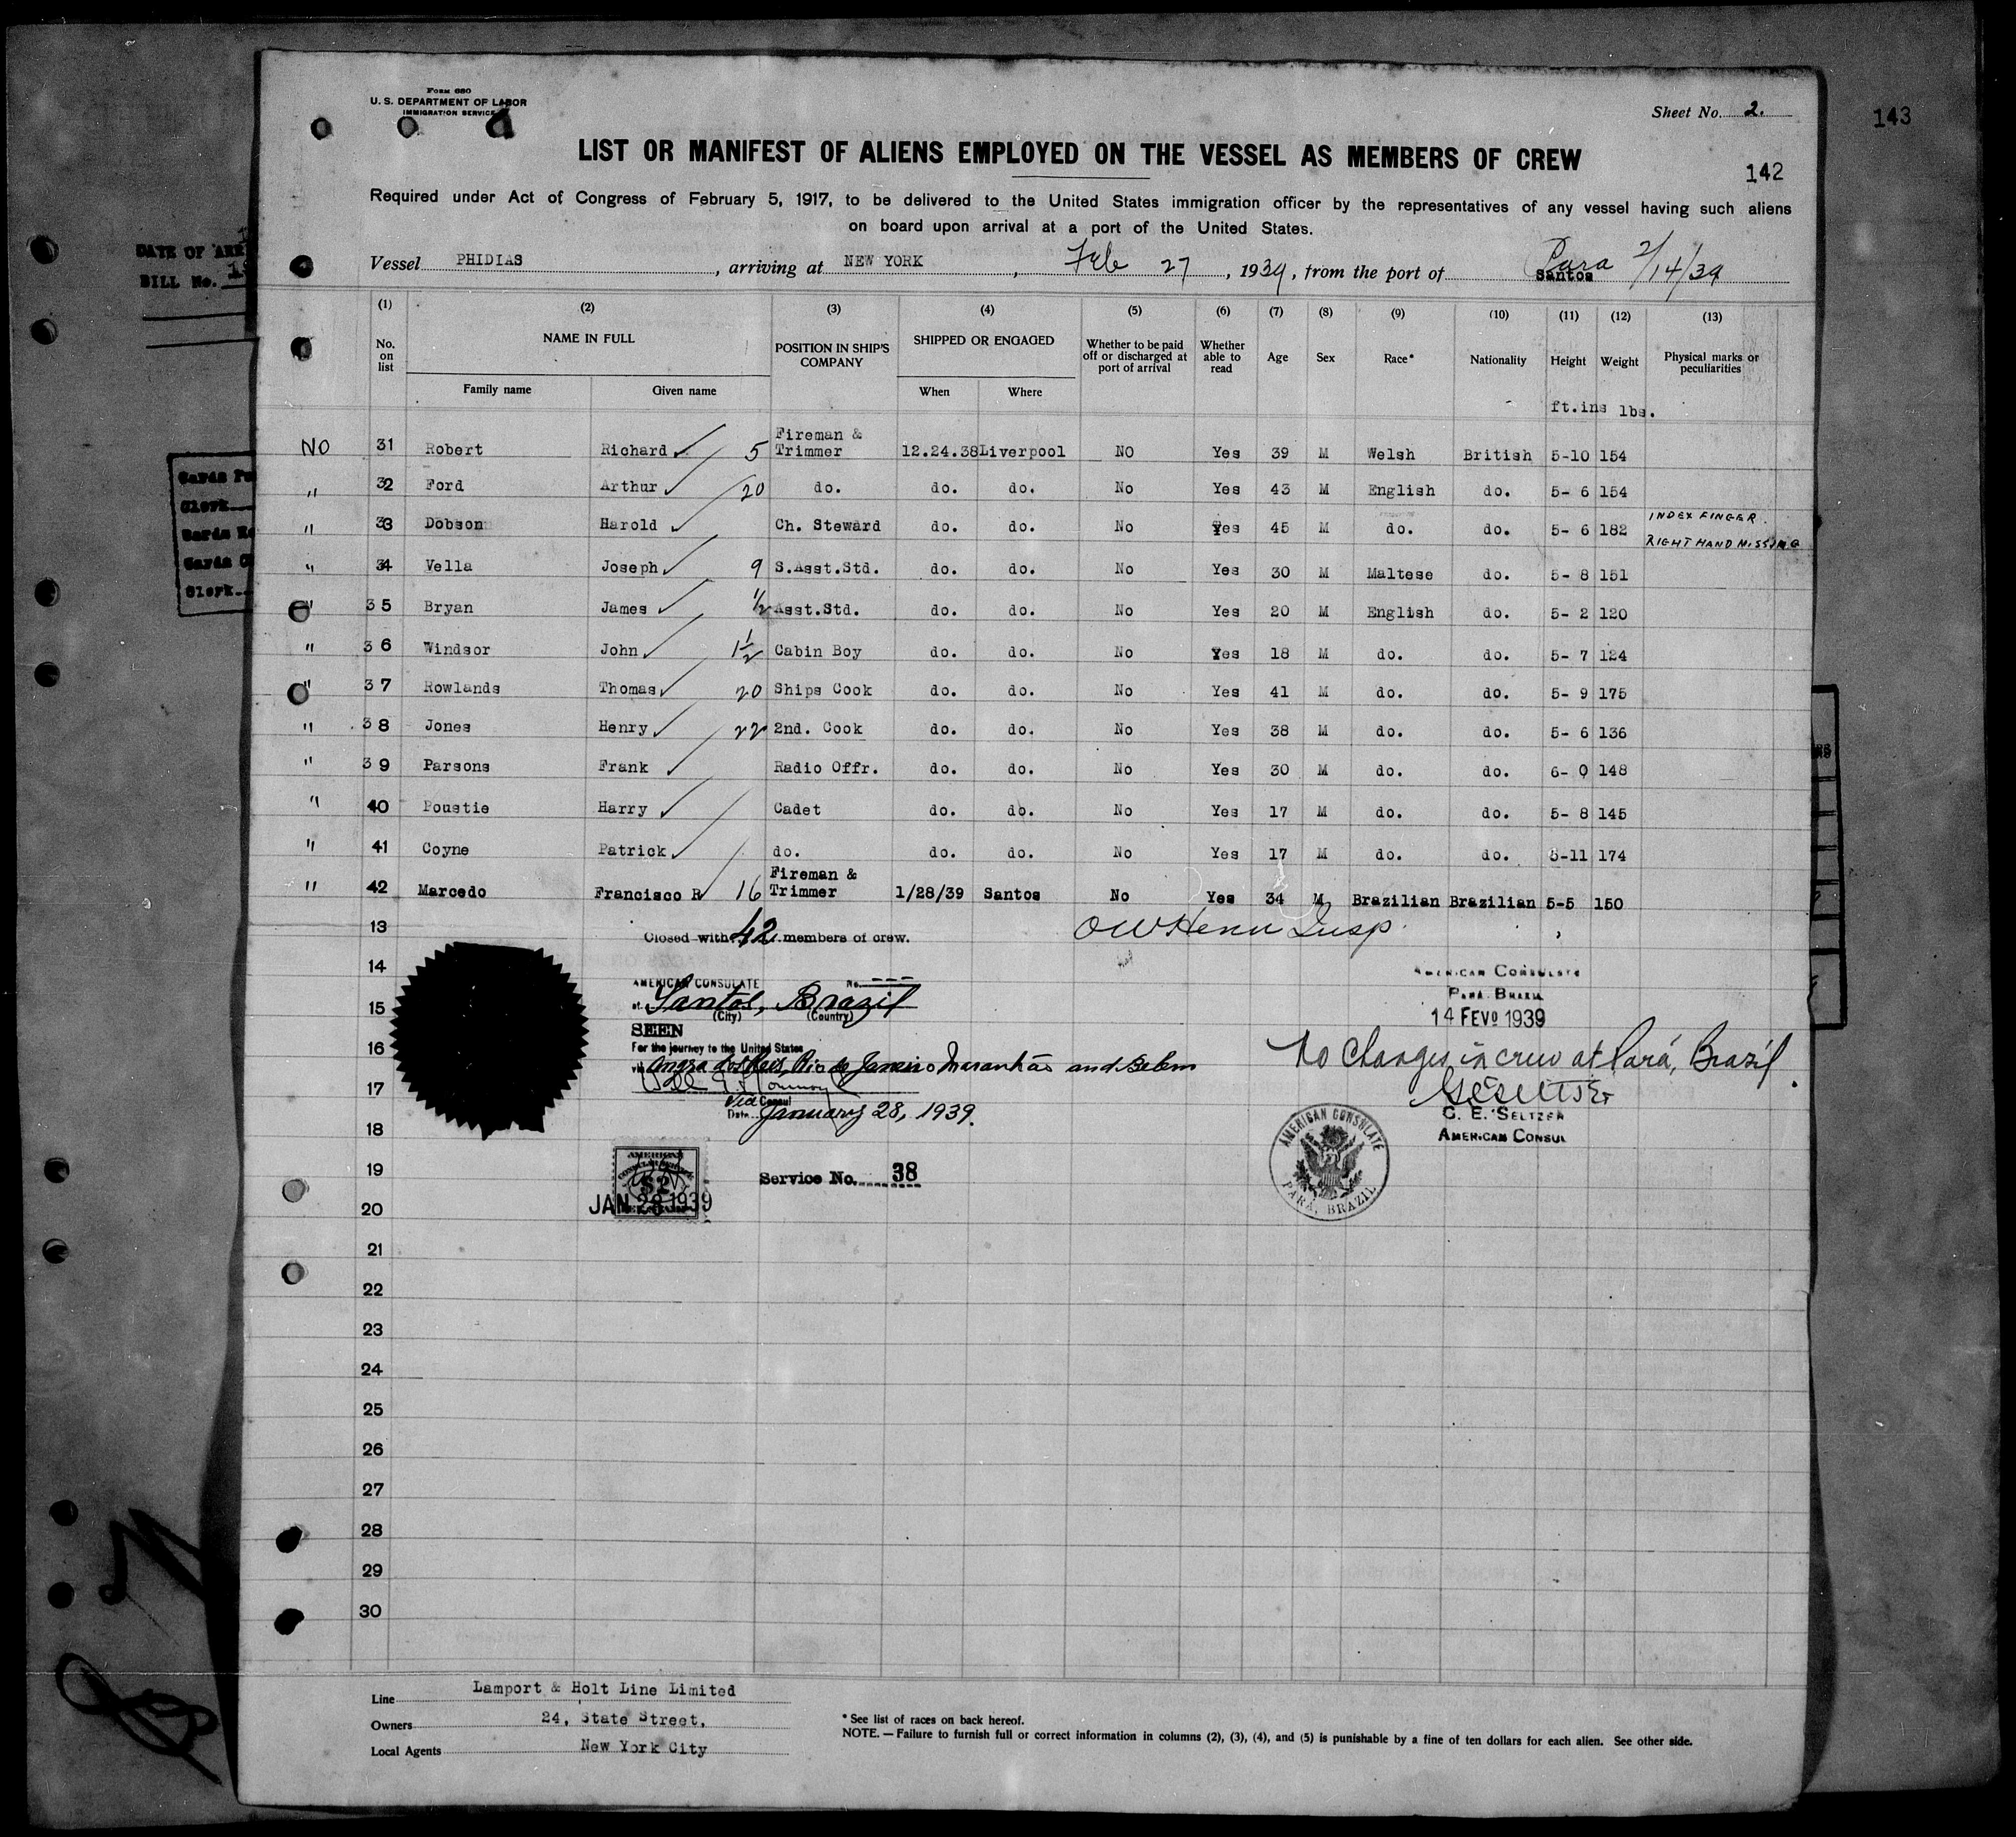 Form 680
U. S. DEPARTMENT OF LABOR
IMMIGRATION SERVICE
Sheet No. 2.
143
LIST OR MANIFEST OF ALIENS EMPLOYED ON THE VESSEL AS MEMBERS OF CREW
142
Required under Act of Congress of February 5, 1917, to be delivered to the United States immigration officer by the representatives of any vessel having such aliens
on board upon arrival at a port of the United States.
DATE OF ARR
BILL No.
Vessel PHIDIAS, arriving at NEW YORK, Feb 27, 1939, from the port of Santos Para 2/14/39
(1) (2) (3) (4) (5) (6) (7) (8) (9) (10) (11) (12) (13)
No. on list NAME IN FULL POSITION IN SHIP'S COMPANY SHIPPED OR ENGAGED Whether to be paid off or discharged at port of arrival Whether able to read Age Sex Race* Nationality Height Weight Physical marks or peculiarities
Family name Given name When Where
ft.ins lbs.
NO 31 Robert Richard 5 Fireman & Trimmer 12.24.38 Liverpool NO Yes 39 M Welsh British 5-10 154
" 32 Ford Arthur 20 do. do. do. No Yes 43 M English do. 5- 6 154
" 33 Dobson Harold Ch. Steward do. do. No Yes 45 M do. do. 5- 6 182 INDEX FINGER RIGHT HAND MISSING
" 34 Vella Joseph 9 S.Asst.Std. do. do. No Yes 30 M Maltese do. 5- 8 151
" 35 Bryan James 1/2 Asst.Std. do. do. No Yes 20 M English do. 5- 2 120
" 36 Windsor John 1 1/2 Cabin Boy do. do. No Yes 18 M do. do. 5- 7 124
" 37 Rowlands Thomas 20 Ships Cook do. do. No Yes 41 M do. do. 5- 9 175
" 38 Jones Henry 22 2nd. Cook do. do. No Yes 38 M do. do. 5- 6 136
" 39 Parsons Frank Radio Offr. do. do. No Yes 30 M do. do. 6- 0 148
" 40 Poustie Harry Cadet do. do. No Yes 17 M do. do. 5- 8 145
" 41 Coyne Patrick do. do. do. No Yes 17 M do. do. 5-11 174
" 42 Marcedo Francisco R 16 Fireman & Trimmer 1/28/39 Santos No Yes 34 M Brazilian Brazilian 5-5 150
13
Closed with 42 members of crew.
Insp.
14
AMERICAN CONSULATE No. ---
AMERICAN CONSULATE
PARÁ BRAZIL
15
at Santos, Brazil
(City) (Country)
14 FEVO 1939
SEEN
16
For the journey to the United States
No changes in crew at Pará, Brazil.
via Angra dos Reis, Rio de Janeiro Maranhão and Belem
17
Vice Consul
Date January 28, 1939.
C. E. SELTZER
AMERICAN CONSUL
18
AMERICAN CONSULATE
PARÁ, BRAZIL
19
AMERICAN
$2
Service No. 38
JAN 28 1939
20
21
22
23
24
25
26
27
28
29
30
Line Lamport & Holt Line Limited
Owners 24, State Street,
Local Agents New York City
* See list of races on back hereof.
NOTE.—Failure to furnish full or correct information in columns (2), (3), (4), and (5) is punishable by a fine of ten dollars for each alien. See other side.
Clerk
Clerk